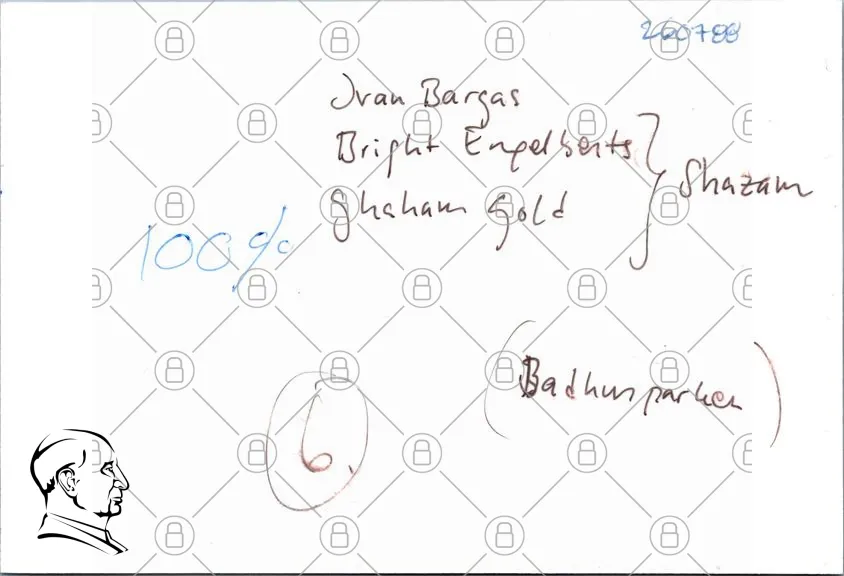 260788
Ivan Bargas
Bright Engelberts
Ghaham Gold
} Shazam
100%
(Badhusparken)
6.